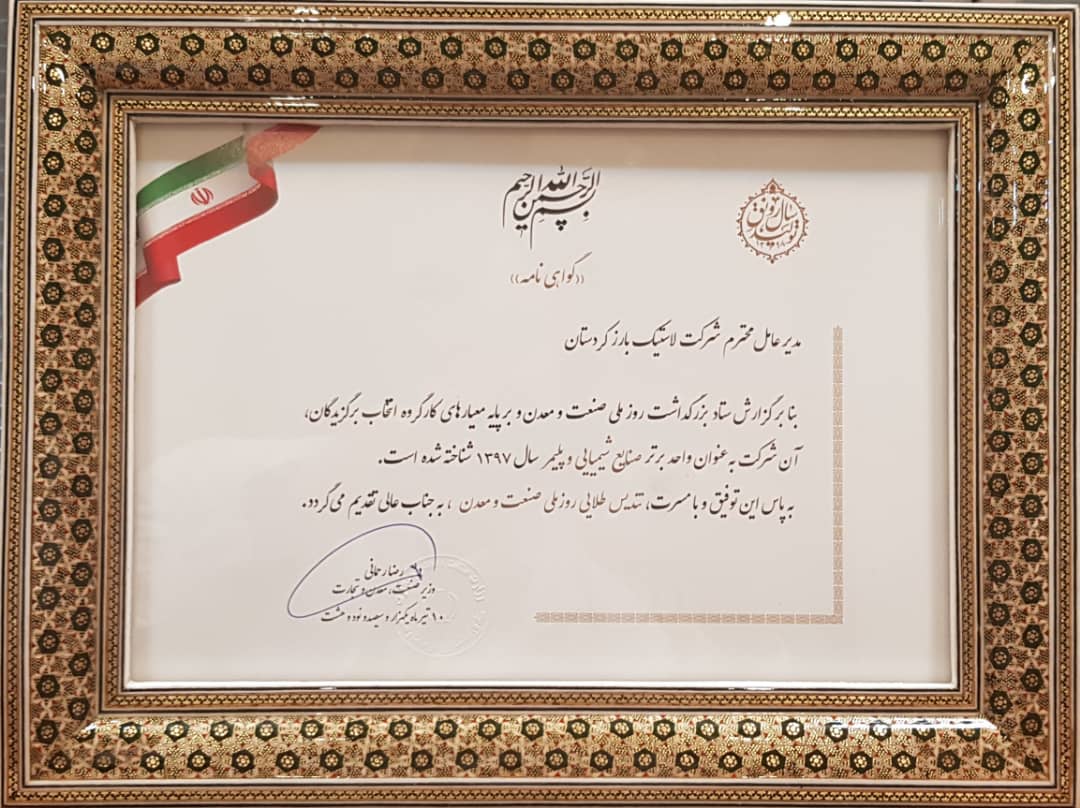 بسم الله الرحمن الرحیم
سال رونق تولید
۱۳۹۸
((گواهی نامه))
مدیر عامل محترم شرکت لاستیک بارز کردستان
بنا بر گزارش ستاد بزرگداشت روز ملی صنعت و معدن و بر پایه معیارهای کارگروه انتخاب برگزیدگان،
آن شرکت به عنوان واحد برتر صنایع شیمیایی و پلیمر سال ۱۳۹۷ شناخته شده است.
به پاس این توفیق و با مسرت، تندیس طلایی روز ملی صنعت و معدن ، به جناب عالی تقدیم می گردد.
رضا رحمانی
وزیر صنعت، معدن و تجارت
۱۰ تیر ماه یکهزار و سیصد و نود و هشت